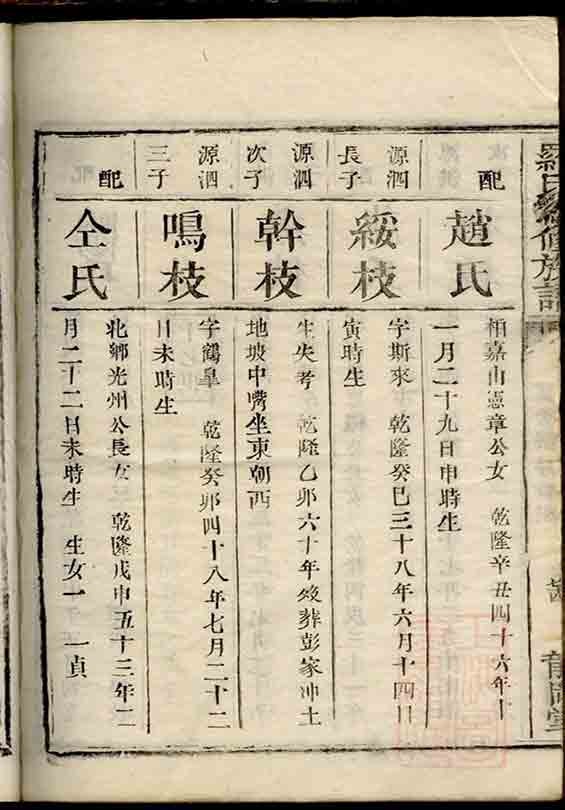 羅氏續修族譜
配
趙氏
栢嘉山憲章公女 乾隆辛丑四十六年十
一月二十九日申時生
源泗
長子
綏枝
字斯來 乾隆癸巳三十八年六月十四日
寅時生
源泗
次子
幹枝
生失考 乾隆乙卯六十年歿葬彭家冲土
地坡中嘴坐東朝西
源泗
三子
鳴枝
字鶴臯 乾隆癸卯四十八年七月二十二
日未時生
配
仝氏
北鄉光州公長女 乾隆戊申五十三年二
月二十二日未時生 生女一 一貞